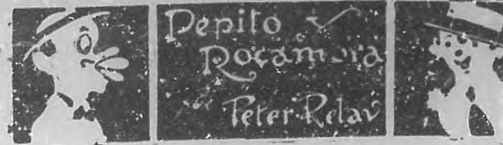 Pepito y
Rocamora
Peter Relav